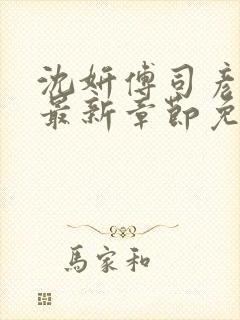 沈妍傅司彦
最新章節免
馬家和